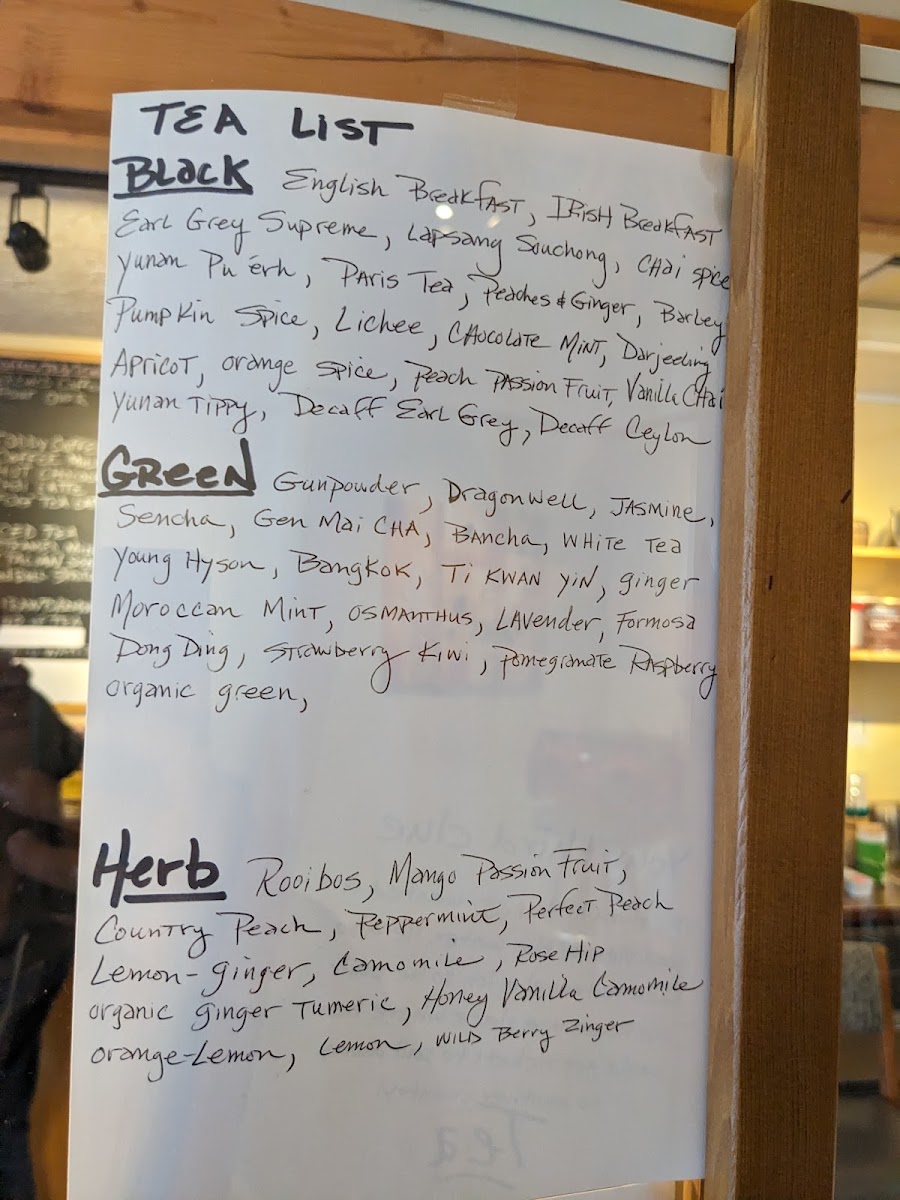 TEA LIST
BLACK English Breakfast, IRISH Breakfast
Earl Grey Supreme, Lapsang Souchong, Chai spice
Yunan Pu érh, PARIS Tea, Peaches & Ginger, Barley
Pumpkin Spice, Lichee, CHOCOLATE MINT, Darjeeling
APRICOT, orange spice, Peach PASSION FRUIT, Vanilla Chai
Yunan TIPPY, Decaff Earl Grey, Decaff Ceylon
GREEN Gunpowder, Dragonwell, JASMINE,
Sencha, Gen Mai CHA, BANCHA, WHITE Tea
Young Hyson, Bangkok, Ti KWAN YIN, ginger
Moroccan Mint, OSMANTHUS, LAVender, Formosa
Dong Ding, Strawberry Kiwi, Pomegranate Raspberry
organic green,
Herb Rooibos, Mango Passion Fruit,
Country Peach, Peppermint, Perfect Peach
Lemon-ginger, Camomile, Rose Hip
organic ginger Tumeric, Honey Vanilla Camomile
orange-Lemon, Lemon, WILD Berry Zinger
Tea